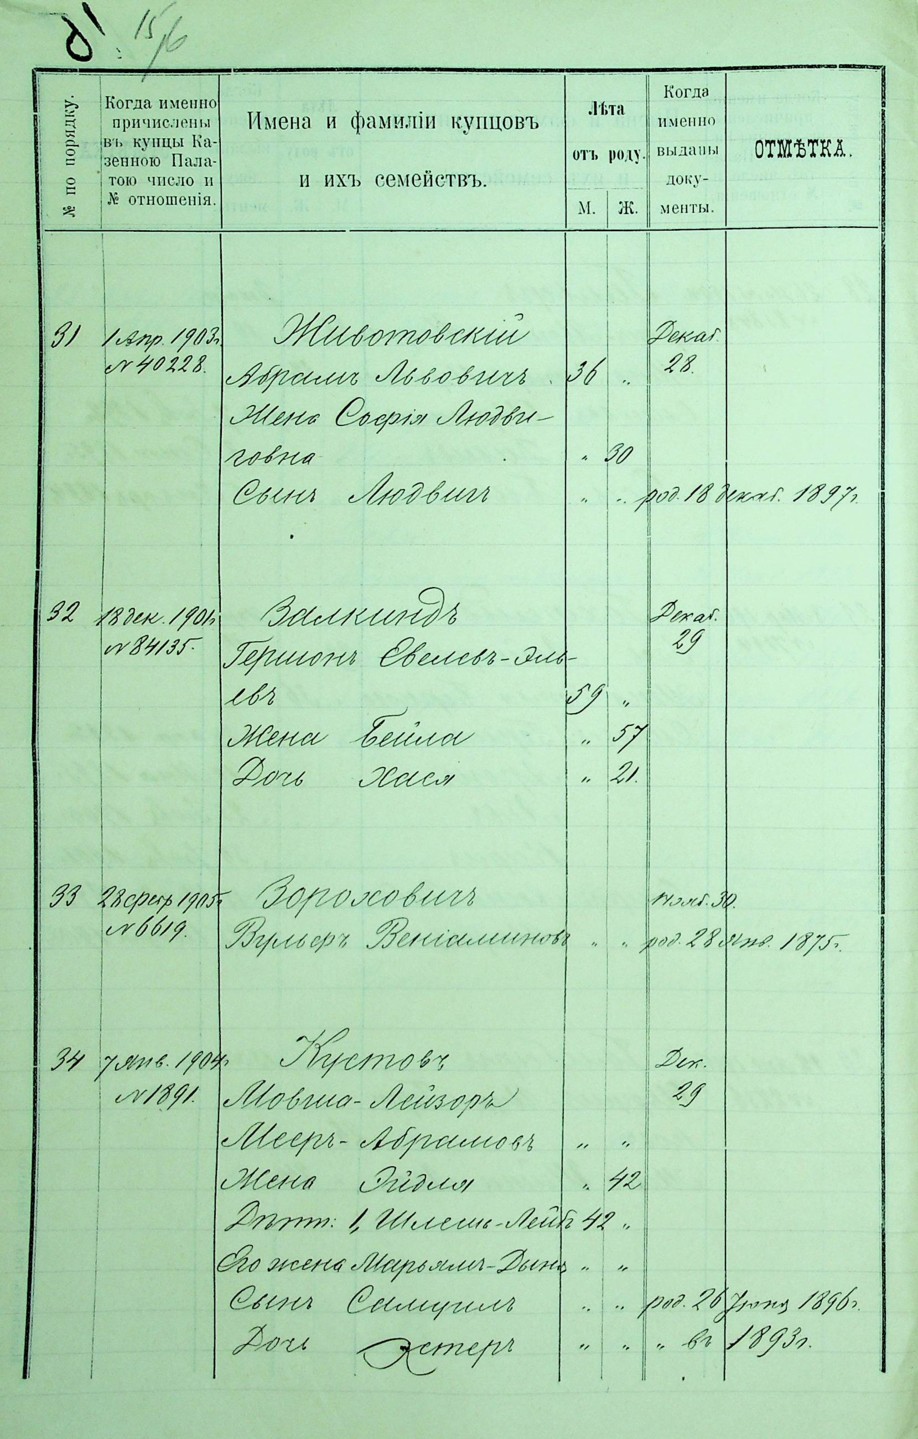 15/6
№ по порядку.
Когда именно причислены въ купцы Ка-зенною Пала-тою число и № отношенія.
Имена и фамиліи купцовъ
и ихъ семействъ.
Лѣта
отъ роду.
М. Ж.
Когда
именно
выданы
доку-
менты.
ОТМѢТКА.
31 1 Апр. 1903 г. Животовскій Декаб.
№ 40228. Абрамъ Львовичъ. 36 „ 28.
Жена Софія Людви-
говна „ 30
Сынъ Людвигъ „ „ род. 18 декаб. 1897 г.
32 18 дек. 1901 г. Залкиндъ Декаб.
№ 84135. Гершонъ Евелевъ-Эль- 29
евъ 59 „
Жена Бейла „ 57
Дочь Хася „ 21.
33 28 февр 1905 г. Зороховичъ Нояб. 30.
№ 6619. Вульфъ Веніаминовъ „ „ род. 28 янв. 1875 г.
34 7 Янв. 1904 г. Кустовъ Дек.
№ 1891. Мовша-Лейзоръ 29
Мееръ-Абрамовъ „ „
Жена Эйдля „ 42
Дѣти: 1, Шлема-Лейбъ 42 „
Его жена Марьямъ-Дына „ „
Сынъ Самуилъ „ „ род. 26 Іюня 1896 г.
Дочь Эстеръ „ „ „ въ 1893 г.